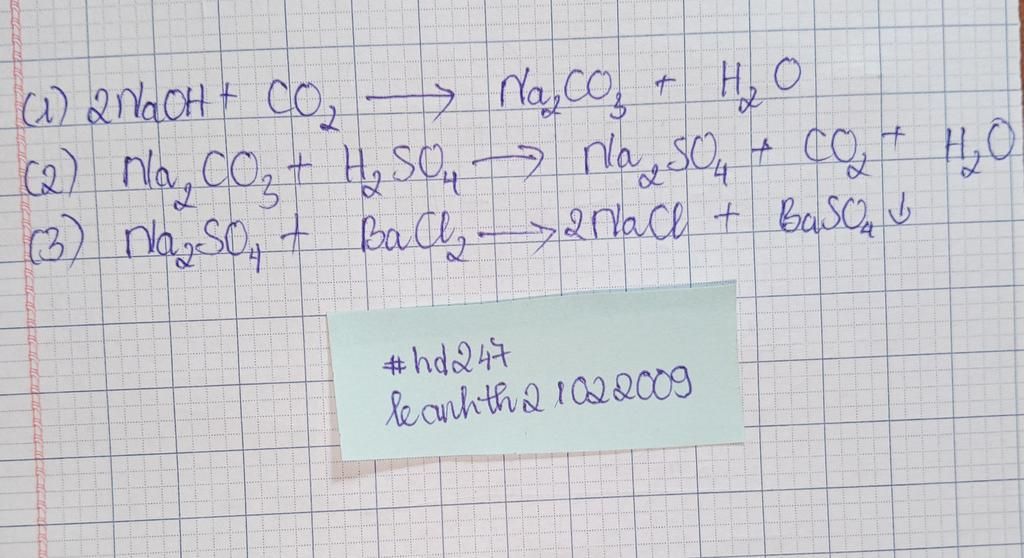 (1) 2NaOH + CO₂ ⟶ Na₂CO₃ + H₂O
(2) Na₂CO₃ + H₂SO₄ ⟶ Na₂SO₄ + CO₂ + H₂O
(3) Na₂SO₄ + BaCl₂ ⟶ 2NaCl + BaSO₄↓
#hd247
leanhth21022009